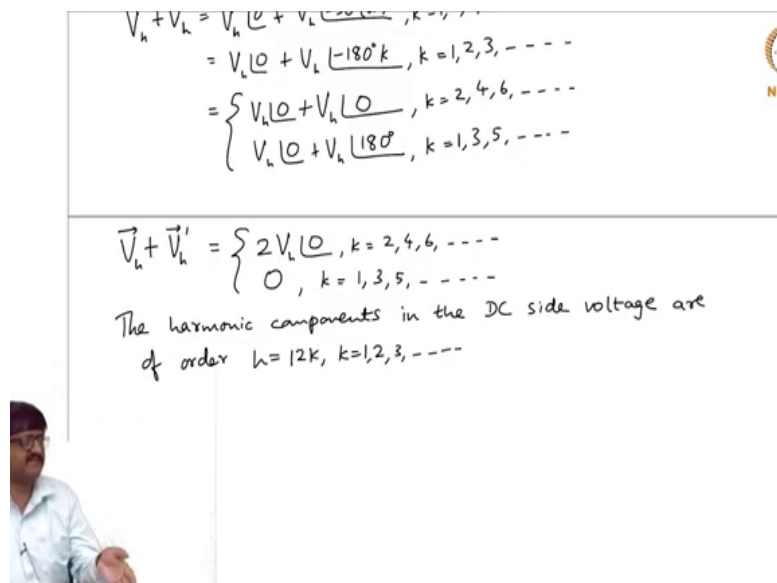 V⃗ₕ + V⃗ₕ = Vₕ∠0 + Vₕ
= Vₕ∠0 + Vₕ∠-180°k , k = 1, 2, 3, ----
= { Vₕ∠0 + Vₕ∠0 , k = 2, 4, 6, ----
Vₕ∠0 + Vₕ∠180° , k = 1, 3, 5, ----
V⃗ₕ + V⃗ₕ' = { 2Vₕ∠0 , k = 2, 4, 6, ----
0 , k = 1, 3, 5, ------
The harmonic components in the DC side voltage are
of order h = 12k, k=1,2,3, ----
N